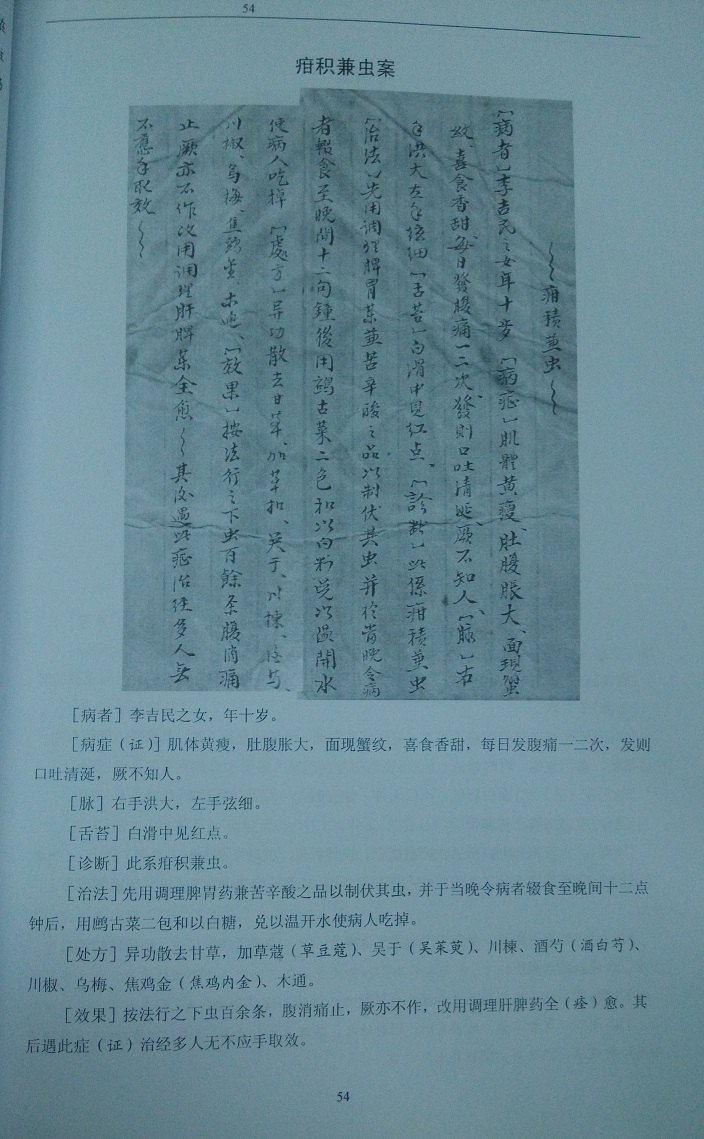 54
疳积兼虫案
疳積兼虫
【病者】李吉民之女年十岁【病症】肌體黄瘦、肚腹胀大、面現蟹
紋、喜食香甜每日發腹痛一二次、發則口吐清涎、厥不知人、【脉】右
手洪大左手弦细【舌苔】白滑中見红点、【診断】此係疳積兼虫
【治法】先用調理脾胃藥兼苦辛酸之品以制伏其虫并於當晚令病
者輟食至晚間十二句鐘後用鹧古菜二包和以白糖兑以温開水
使病人吃掉【處方】异功散去甘草、加草扣、吴于、川楝、酒芍、
川椒、烏梅、焦鸡金、木通、【效果】按法行之下虫百餘条腹消痛
止厥亦不作改用調理肝脾藥全愈 其後遇此症治经多人無
不應手取效
［病者］李吉民之女，年十岁。
［病症（证）］肌体黄瘦，肚腹胀大，面现蟹纹，喜食香甜，每日发腹痛一二次，发则
口吐清涎，厥不知人。
［脉］右手洪大，左手弦细。
［舌苔］白滑中见红点。
［诊断］此系疳积兼虫。
［治法］先用调理脾胃药兼苦辛酸之品以制伏其虫，并于当晚令病者辍食至晚间十二点
钟后，用鹧古菜二包和以白糖，兑以温开水使病人吃掉。
［处方］异功散去甘草，加草蔻（草豆蔻）、吴于（吴茱萸）、川楝、酒芍（酒白芍）、
川椒、乌梅、焦鸡金（焦鸡内金）、木通。
［效果］按法行之下虫百余条，腹消痛止，厥亦不作，改用调理肝脾药全（痊）愈。其
后遇此症（证）治经多人无不应手取效。
54